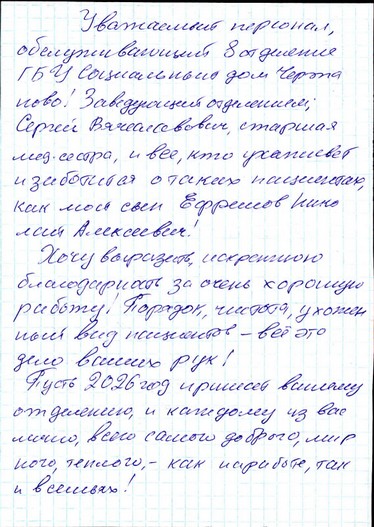 Уважаемый персонал,
обслуживающий 8 отделение
ГБУ Социальный дом Черта
ново! Заведующий отделением,
Сергей Вячеславович, старшая
мед. сестра, и все, кто ухаживает
и заботится о таких пациентах,
как мой сын Ефремов Нико
лай Алексеевич!
Хочу выразить искреннюю
благодарность за очень хорошую
работу! Порядок, чистота, ухожен
ный вид пациентов – всё это
дело ваших рук!
Пусть 2026 год принесёт вашему
отделению, и каждому из вас
лично, всего самого доброго, мир
ного, теплого, – как на работе, так
и в семьях!